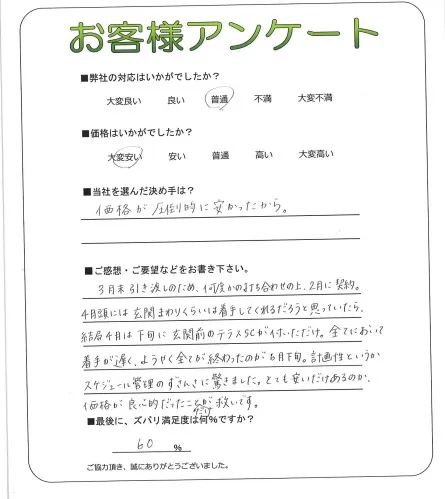 お客様アンケート
■弊社の対応はいかがでしたか？
大変良い 良い 普通 不満 大変不満
■価格はいかがでしたか？
大変安い 安い 普通 高い 大変高い
■当社を選んだ決め手は？
価格が圧倒的に安かったから。
■ご感想・ご要望などをお書き下さい。
3月末引き渡しのため、何度かの打ち合わせの上、2月に契約。
4月頭には玄関まわりくらいは着手してくれるだろうと思っていたら、
結局4月は下旬に玄関前のテラスSCが付いただけ。全てにおいて
着手が遅く、ようやく全てが終わったのが6月下旬。計画性というか
スケジュール管理のずさんさに驚きました。とても安いだけあるのか、
価格が良心的だったことだけが救いです。
■最後に、ズバリ満足度は何％ですか？
60 ％
ご協力頂き、誠にありがとうございました。